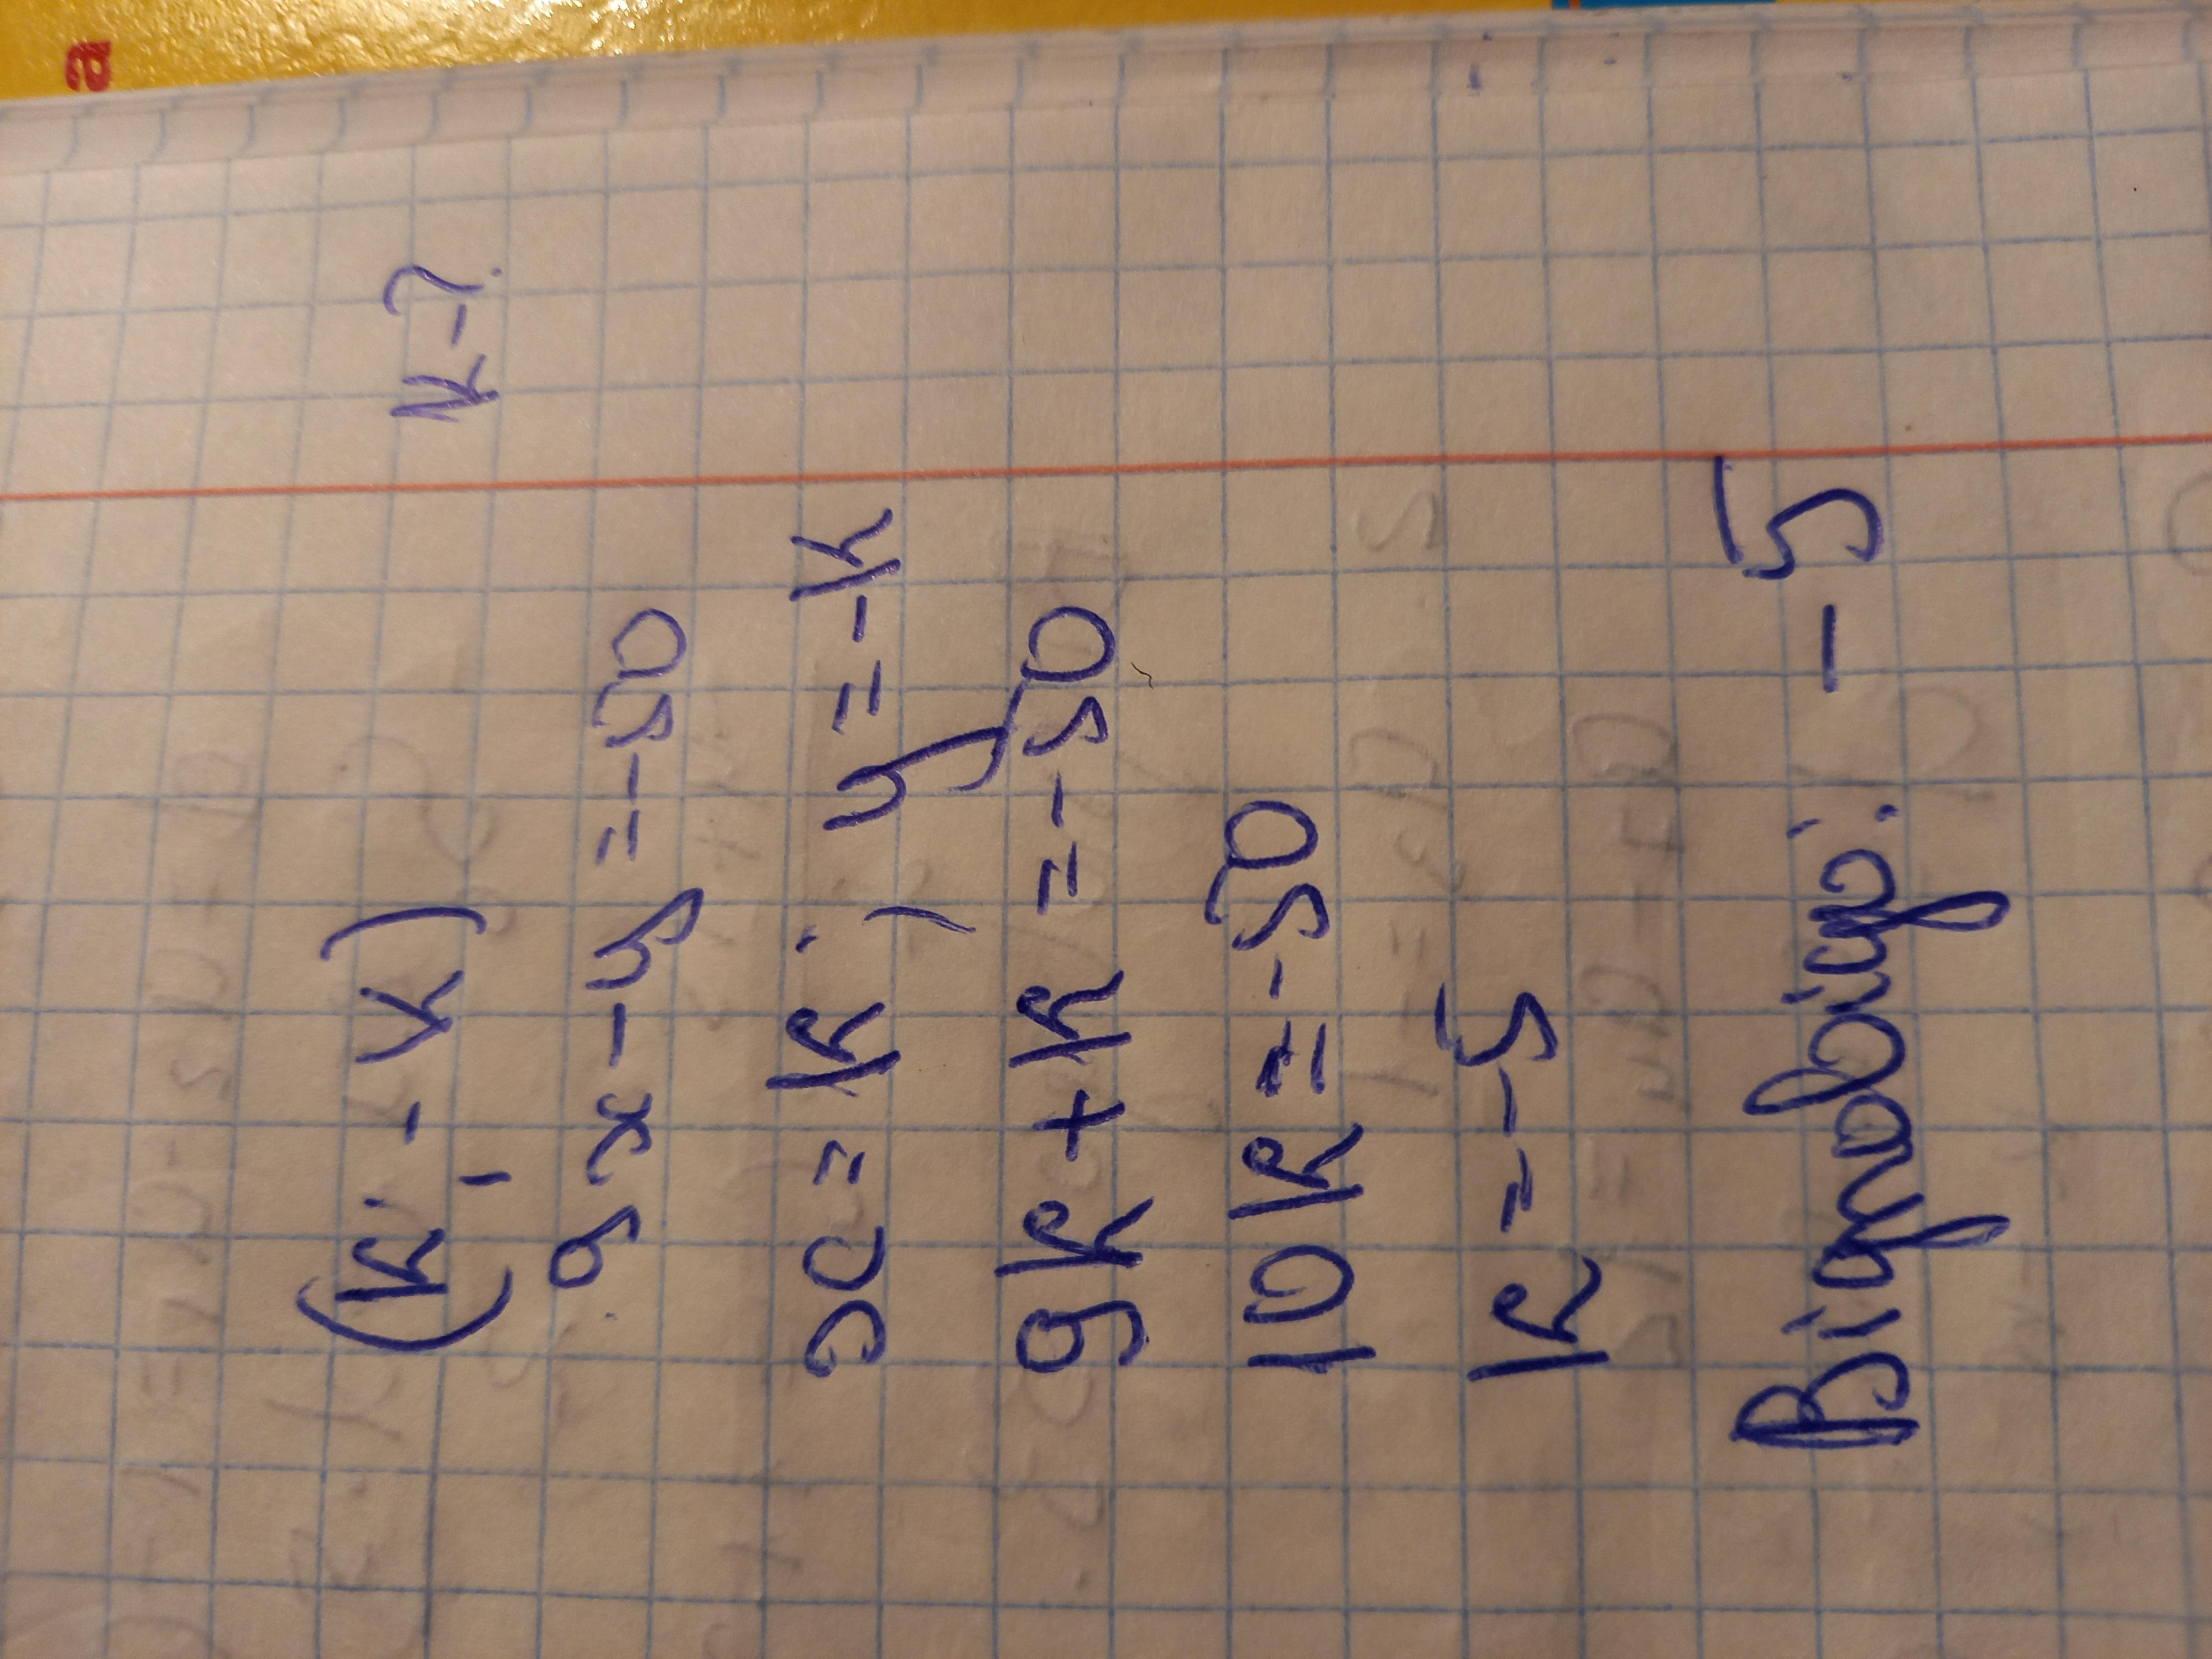 (k; -k) k-?
9x-y=-50
x=k; y=-k
9k+k=-50
10k=-50
k=-5
Відповідь: -5
a